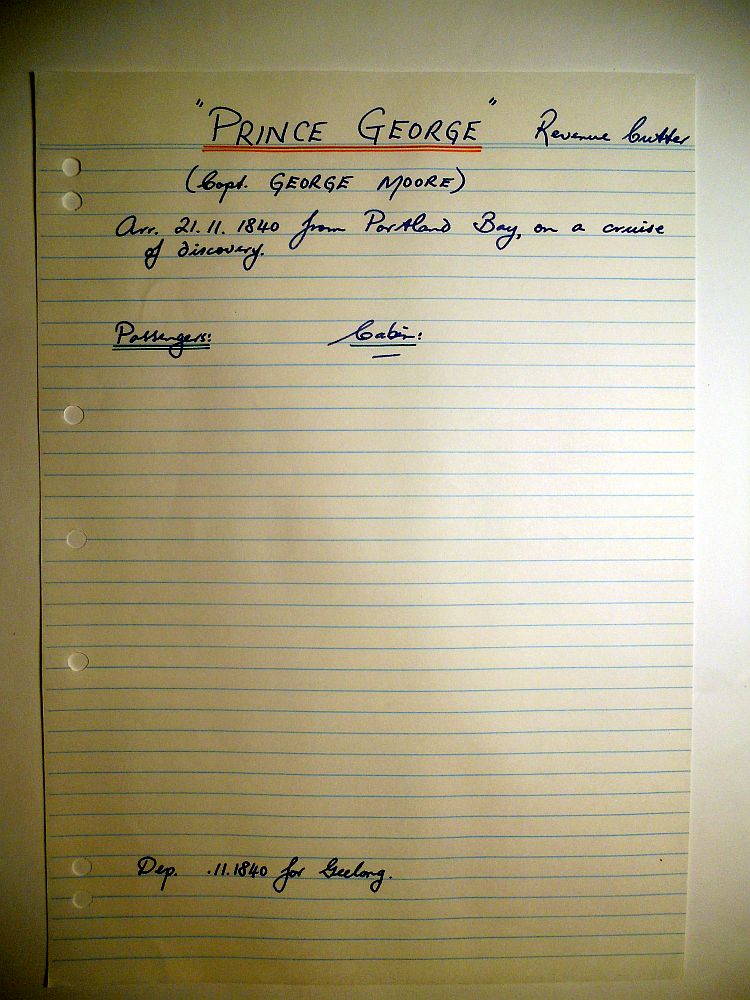 "PRINCE GEORGE" Revenue Cutter
(Capt. GEORGE MOORE)
Arr. 21.11.1840 from Portland Bay, on a cruise
of discovery.
Passengers: Cabin:
Dep. .11.1840 for Geelong.